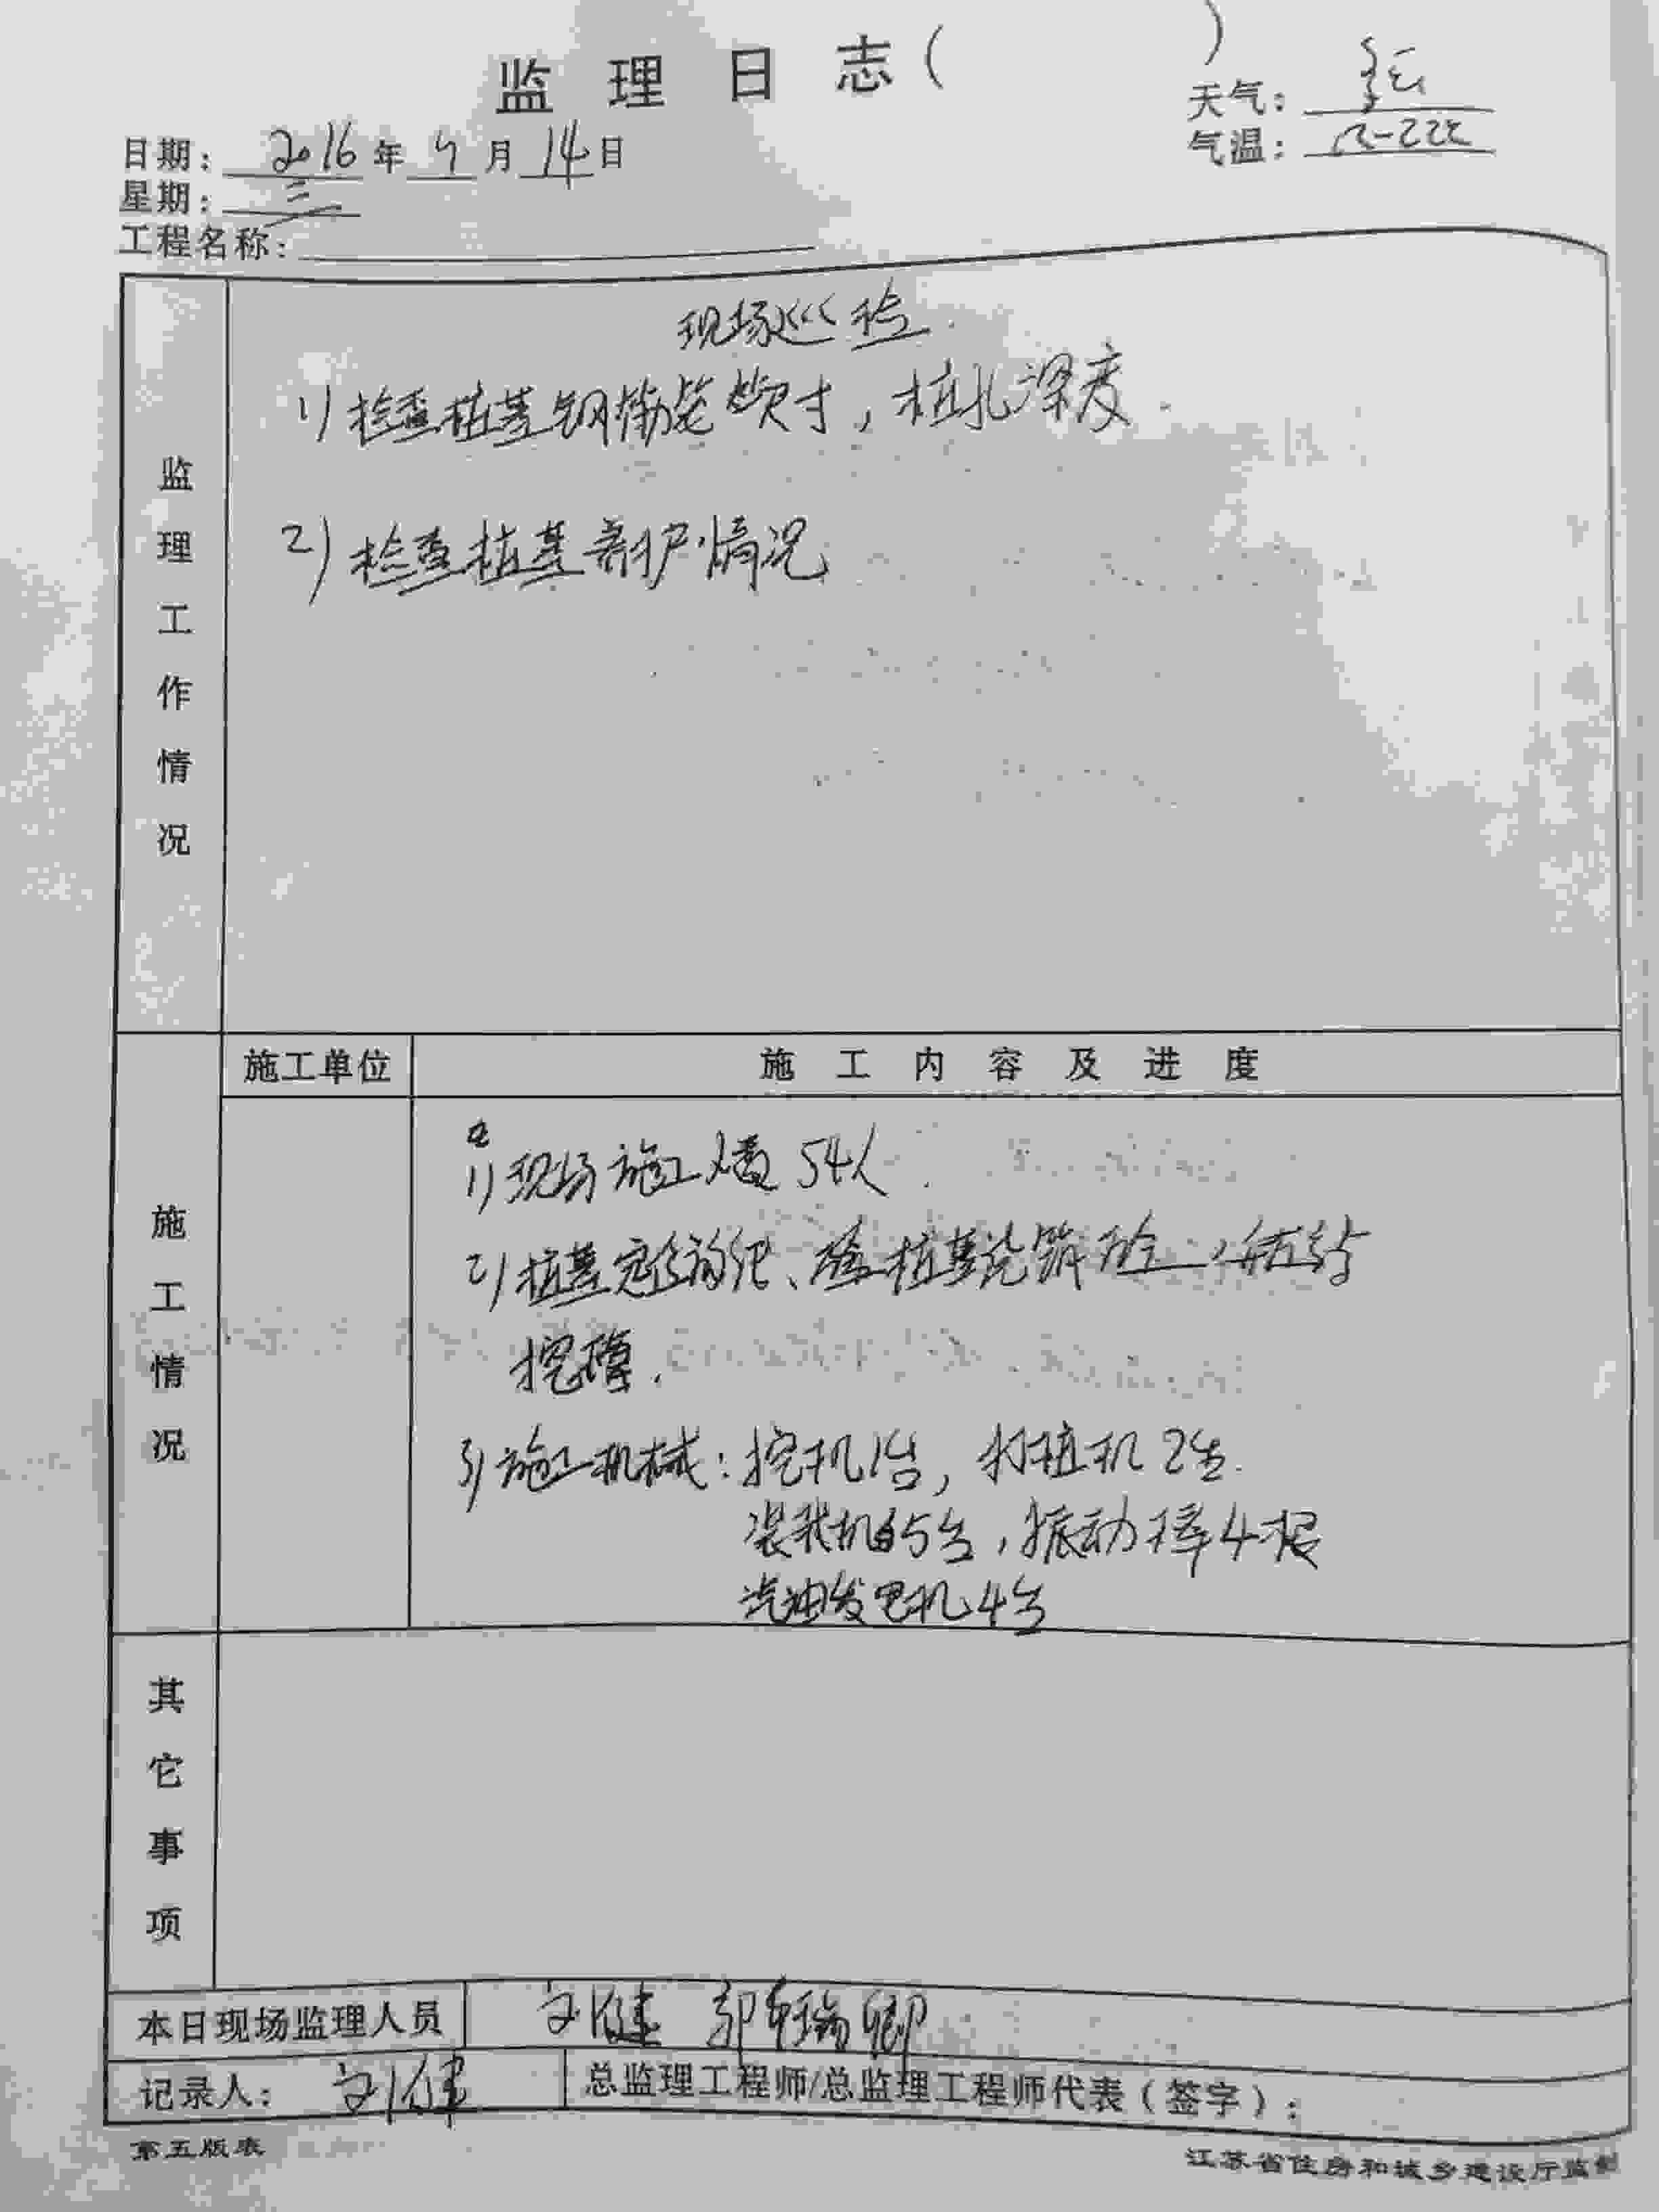 监理日志（ ）
天气：多云
气温：
日期：2016年9月14日
星期：三
工程名称：
现场巡检
1) 检查桩基钢筋笼尺寸，桩孔深度
2) 检查桩基养护情况
监理工作情况
施工单位 施工内容及进度
1) 现场施工人员54人
2) 桩基定位放线、桩基浇筑砼
挖
3) 施工机械：挖机1台，打桩机2台
装载机5台，振动棒4根
汽油发电机4台
施工情况
其它事项
本日现场监理人员 刘健 郭瑞卿
记录人：刘健 总监理工程师/总监理工程师代表（签字）：
第五版表 江苏省住房和城乡建设厅监制